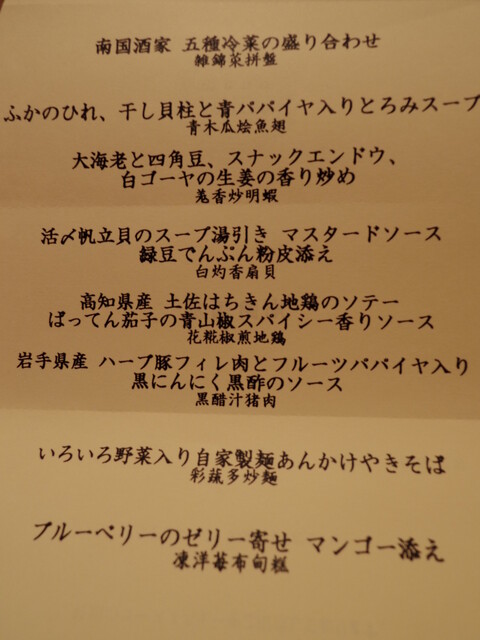 南国酒家 五種冷菜の盛り合わせ
雑錦菜拼盤
ふかのひれ、干し貝柱と青パパイヤ入りとろみスープ
青木瓜烩魚翅
大海老と四角豆、スナックエンドウ、
白ゴーヤの生姜の香り炒め
羗香炒明蝦
活〆帆立貝のスープ湯引き マスタードソース
緑豆でんぷん粉皮添え
白灼香扇貝
高知県産 土佐はちきん地鶏のソテー
ばってん茄子の青山椒スパイシー香りソース
花糀椒煎地鶏
岩手県産 ハーブ豚フィレ肉とフルーツパパイヤ入り
黒にんにく黒酢のソース
黒醋汁猪肉
いろいろ野菜入り自家製麺あんかけやきそば
彩蔬多炒麺
ブルーベリーのゼリー寄せ マンゴー添え
凍洋莓布甸糕